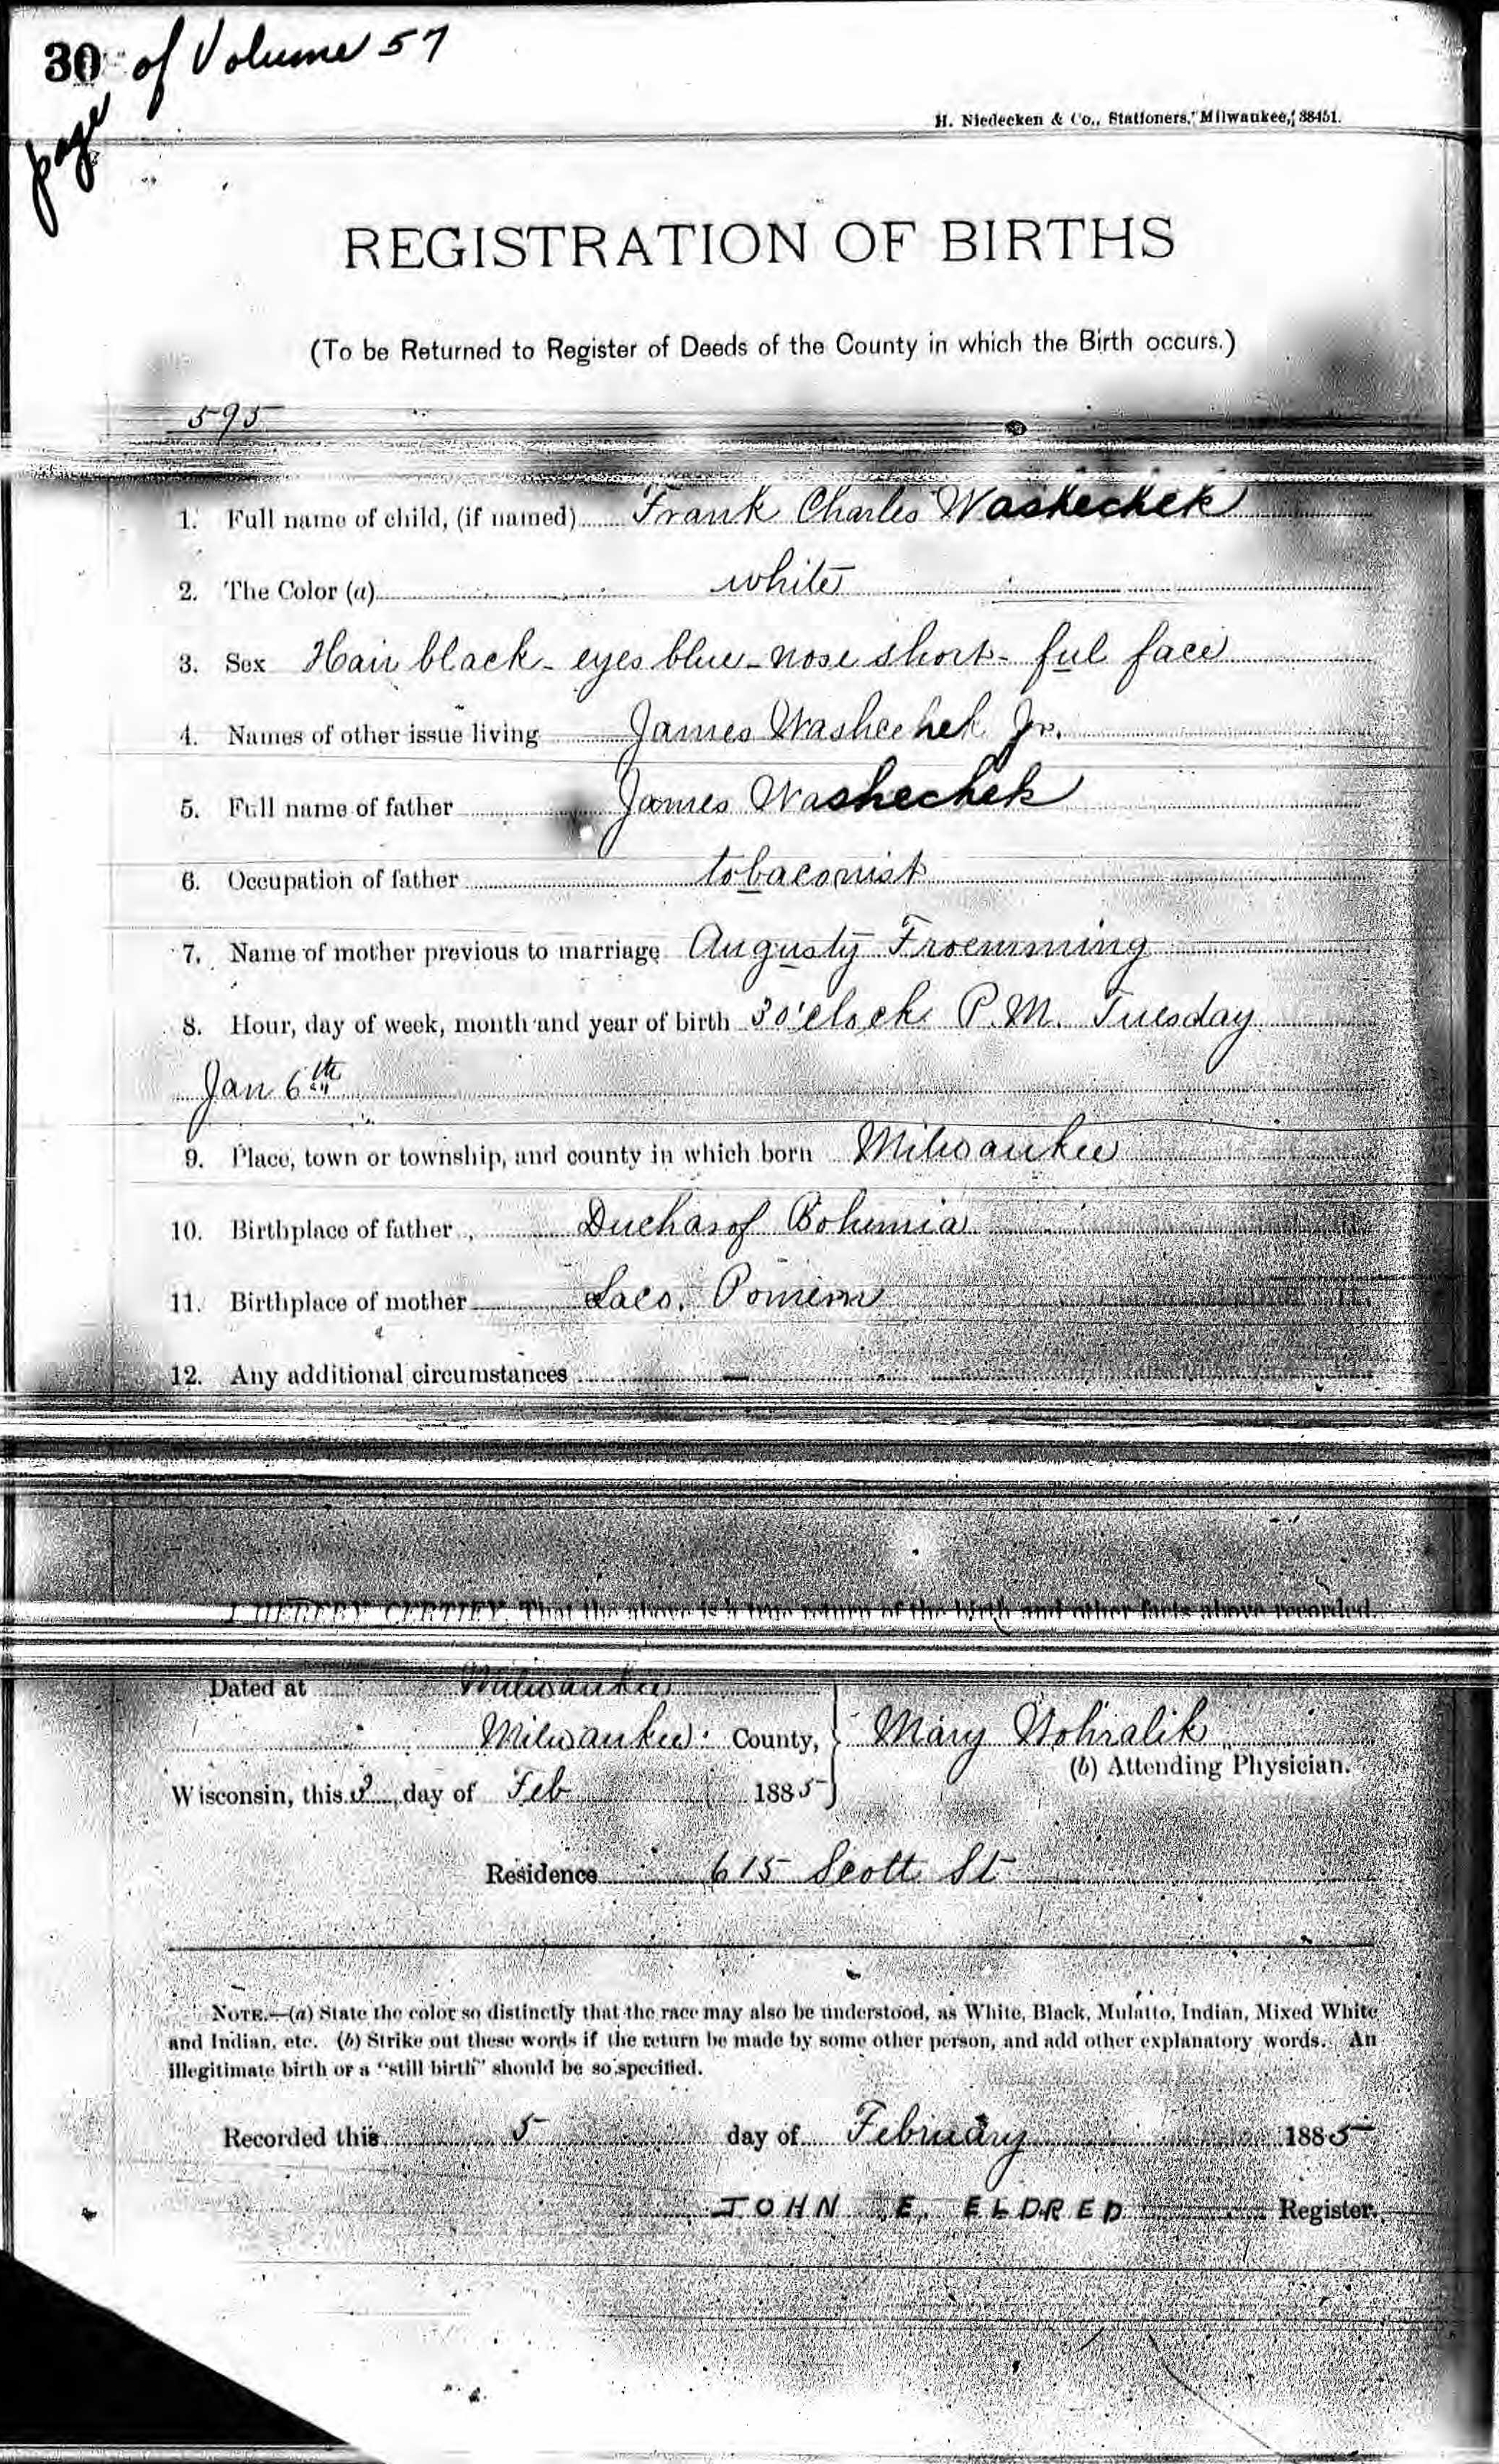 30 of Volume 57
page
H. Niedecken & Co., Stationers, Milwaukee, 38451.
REGISTRATION OF BIRTHS
(To be Returned to Register of Deeds of the County in which the Birth occurs.)
595
1. Full name of child, (if named) Frank Charles Washechek
2. The Color (a) white
3. Sex Hair black - eyes blue - nose short - ful face
4. Names of other issue living James Washechek Jr.
5. Full name of father James Washechek
6. Occupation of father tobaconist
7. Name of mother previous to marriage Augusty Froemming
8. Hour, day of week, month and year of birth 3 o'clock P.M. Tuesday
Jan 6th
9. Place, town or township, and county in which born Milwaukee
10. Birthplace of father Duchasof Bohemia
11. Birthplace of mother
12. Any additional circumstances
I HEREBY CERTIFY That the above is a true return of the birth and other facts above recorded.
Dated at Milwaukee
Milwaukee County, Mary Wohralik
(b) Attending Physician.
Wisconsin, this day of Feb 1885
Residence 615 Scott St
NOTE.—(a) State the color so distinctly that the race may also be understood, as White, Black, Mulatto, Indian, Mixed White
and Indian, etc. (b) Strike out these words if the return be made by some other person, and add other explanatory words. An
illegitimate birth or a "still birth" should be so specified.
Recorded this 5 day of February 1885
JOHN E. ELDRED Register.